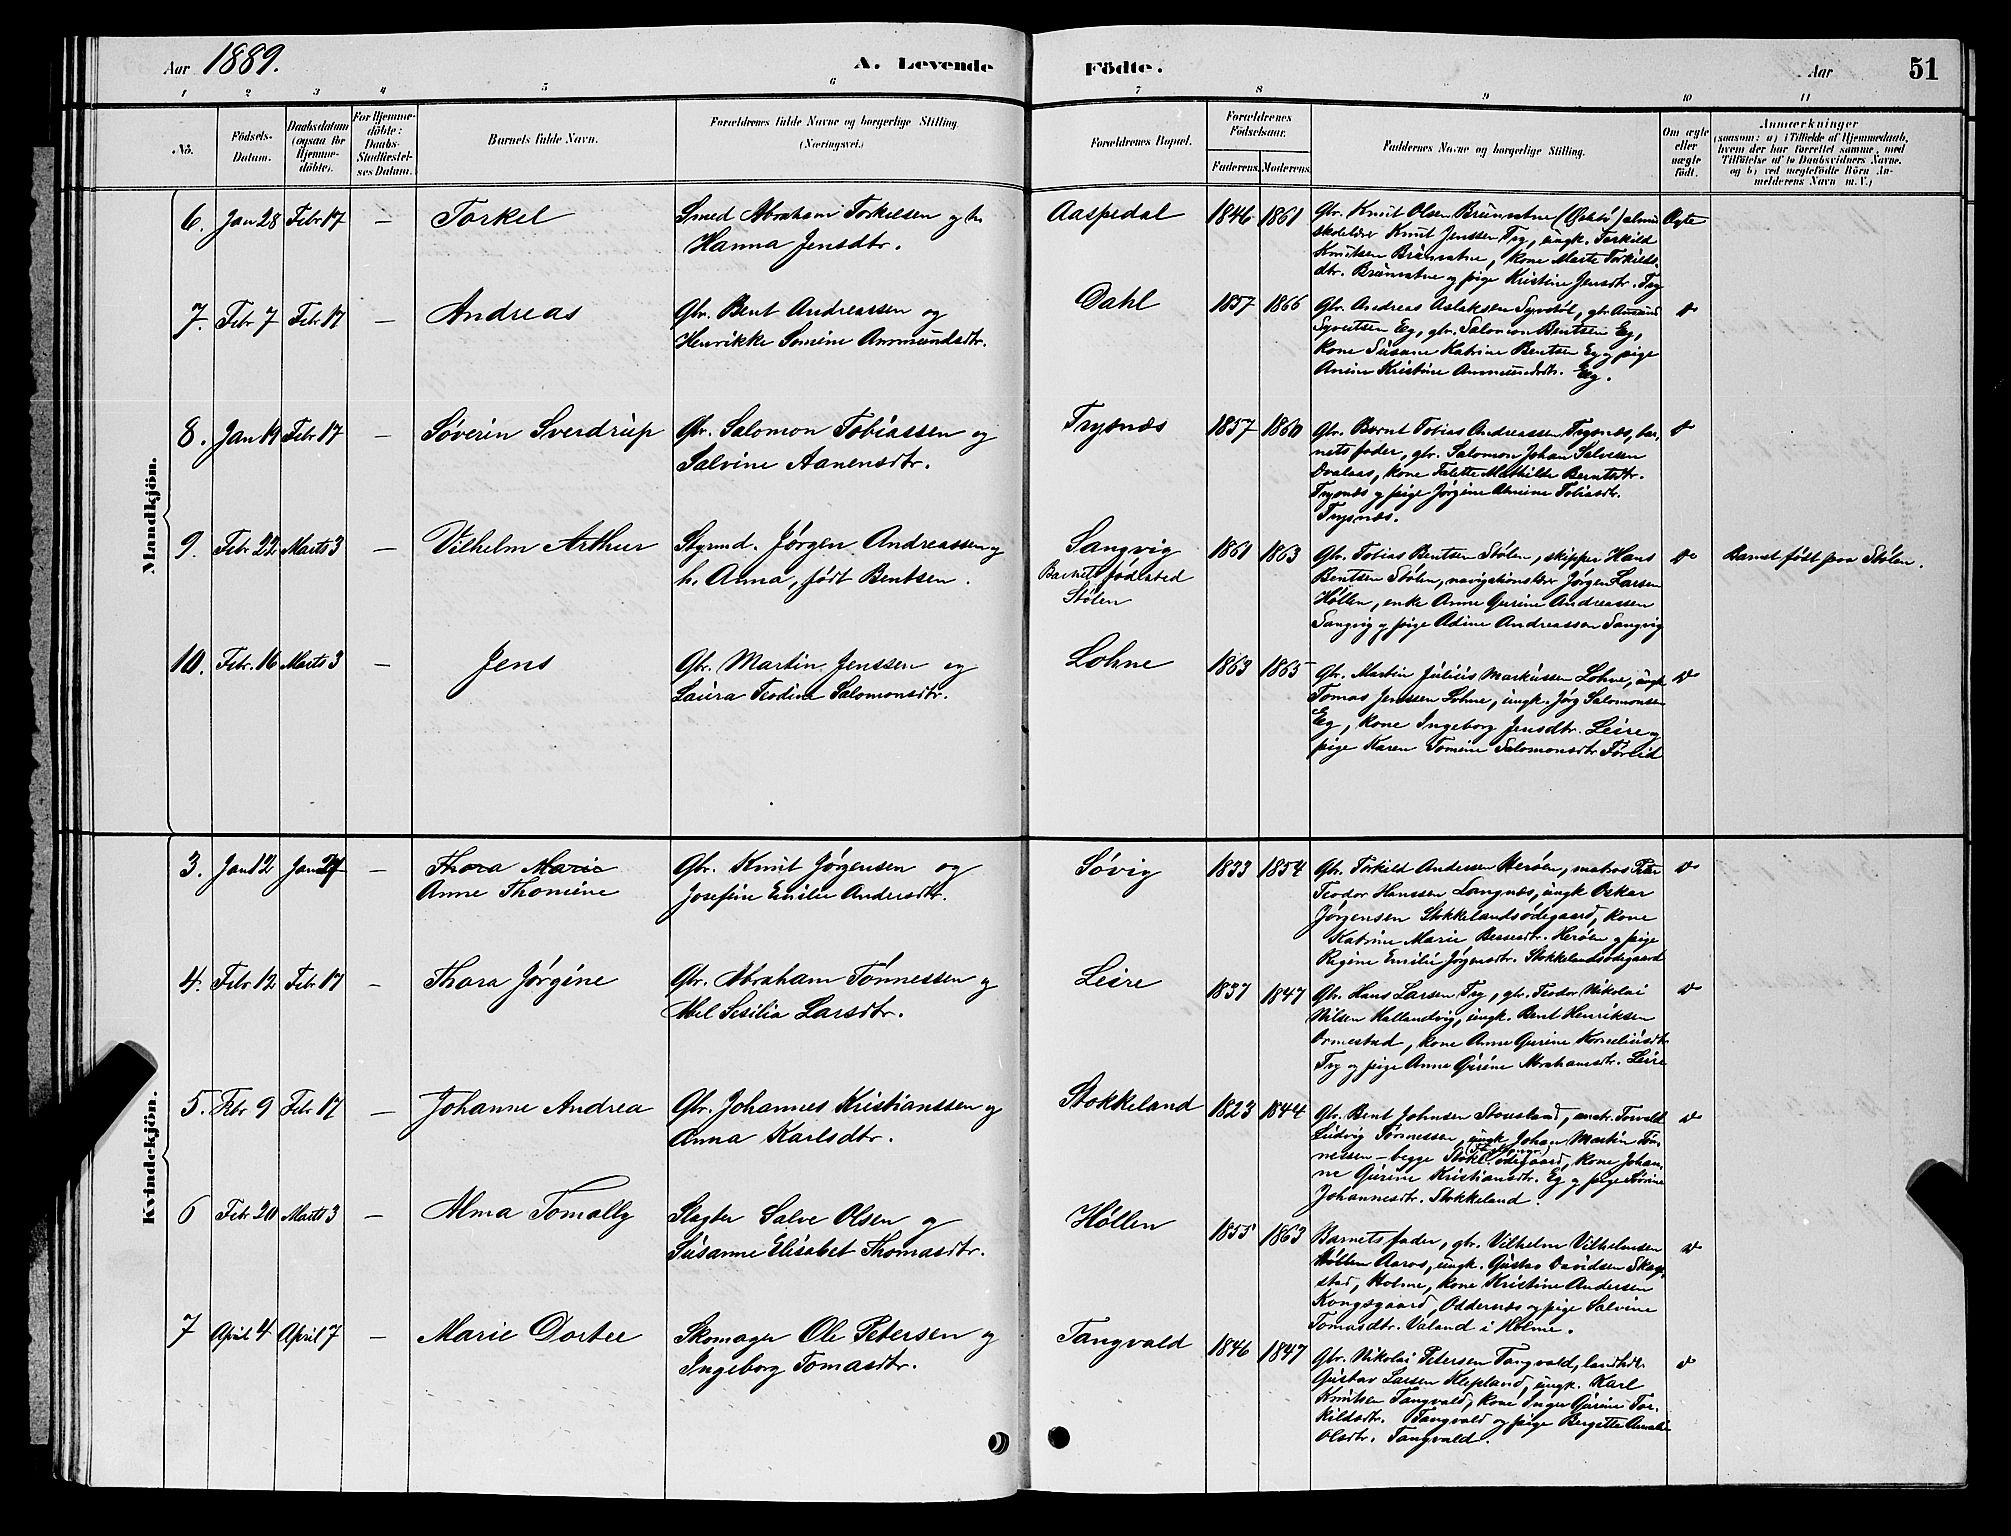 Aar 1889. A. Levende Födte. Aar 51
1 2 3 4 5 6 7 8 9 10 11
No. Födsels-Datum. Daabsdatum (ogsaa for Hjemmedöbte). For Hjemmedöbte: Daabs-Stadfæstelses Datum. Barnets fulde Navn. Forældrenes fulde Navne og borgerlige Stilling. (Næringsvei.) Forældrenes Bopæl. Forældrenes Födselsaar. Faderens. Moderens. Faddernes Navne og borgerlige Stilling. Om ægte eller uægte födt. Anmærkninger
(saasom: a) i Tilfælde af Hjemmedaab,
hvem der har forrettet samme, med
Tilföielse af to Daabsvidners Navne.
og b) ved uægtefödte Börn An-
melderens Navn m. V.)
Mandkjön.
6. Jan 28 Febr 17 — Torkel Smed Abraham Torkelsen og h.
Hanna Jensdtr.
Aaspedal 1846 1861 Gbr. Knut Olsen Brunvatne almu
skolelærer Knut Jenssen Try, ungk. Torkild
Knutsen Brunvatne, kone Marte Torkilds-
dtr. Brunvatne og pige Kristine Jensdtr. Try
Ægte
7. Febr 7 Febr 17 — Andreas Gbr. Bent Andreassen og
Henrikke Somine Ammundsdtr.
Dahl 1857 1866 Gbr. Andreas Aslaksen gbr. Amund
Syvertsen Eg, gbr. Salomon Bentsen Eg,
kone Susane Katrine Bentsen Eg og pige
Anine Kristine Ammundsdtr. Eg.
8. Jan 19 Febr 17 — Søverin Sverdrup Gbr. Salomon Tobiassen og
Salvine Aanensdtr.
Trysnæs 1857 1860 Gbr. Bernt Tobias Andreassen Trysnæs, bar-
nets fader, gbr. Salomon Johan Salvesen
Dvalaas, kone Talette Mathilde Berntsdtr.
Trysnæs og pige Jørgine Almine Tobiasdtr.
Trysnæs.
9. Febr 22 Marts 3 — Vilhelm Arthur Styrmd. Jørgen Andreassen og
h. Anna, født Bentsen.
Sangvig
Barnets fødested
Stølen
1861 1863 Gbr. Tobias Bentsen Stølen, skipper Hans
Bentsen Stølen, navigationslærer Jørgen Larsen
Høllen, enke Anne Gurine Andreassen
Sangvig og pige Adine Andreassen Sangvig
Barnet født paa Stølen.
10. Febr. 16 Marts 3 — Jens Gbr. Martin Jenssen og
Laura Teodine Salomonsdtr.
Lohne 1863 1865 Gbr. Martin Julius Markussen Lohne, ungk
Tomas Jenssen Lohne, ungk. Jørg Salomonsen
Eg, kone Ingeborg Jensdtr. Leire og
pige Karen Tomine Salomonsdtr
Kvindekjön.
3. Jan 12 Jan 27 — Thora Marie
Anne Thomine
Gbr. Knut Jørgensen og
Josefine Emilie Andersdtr.
Søvig 1833 1854 Gbr. Torkild Andersen Herøen, matros Peter
Teodor Hanssen Langnæs, ungk Oskar
Jørgensen Stokkelandsødegaard, kone
Katrine Marie Herøen og pige
Regine Emilie Jørgensdtr. Stokkelandsødegaard
4. Febr 12 Febr 17 — Thora Jørgine Gbr. Abraham Tønnessen og
Abel Sesilia Larsdtr.
Leire 1837 1847 Gbr. Hans Larsen Try, gbr. Teodor Nikolai
Nilsen Kallandvig, ungk. Bent Henriksen
Ormestad, kone Anne Gurine Korneliusdtr.
Try og pige Anne Gurine Abrahamsdtr. Leire
5. Febr 9 Febr 17 — Johanne Andrea Gbr. Johannes Kristianssen og
Anna Karlsdtr.
Stokkeland 1823 1844 Gbr. Bent Johnsen Stousland, matr. Torvald
Ludvig Tønnessen, ungk Johan Martin Tøn-
nessen — begge Stokl. ødegaard, kone Johan-
ne Gurine Kristiansdtr. Eg og pige Sørine
Johannesdtr. Stokkeland.
6 Febr 20 Marts 3 — Alma Tomally Slagter Salve Olsen og
Susanne Elisabet Thomasdtr.
Høllen 1855 1863 Barnets fader, gbr. Vilhelm Vilhelmsen
Aaros, ungk. Gustav Davidsen Skag-
stad, Holme, kone Kristine Andersen
Kongsgaard, Oddernæs og pige Salvine
Tomasdtr. Valand i Holme.
7 April 4 April 7 — Marie Dortee Skomager Ole Petersen og
Ingeborg Tomasdtr.
Tangvald 1846 1847 Gbr. Nikolai Petersen Tangvald, landhdl.
Gustav Larsen Klepland, ungk. Karl
Knutsen Tangvald, kone Inger Gurine Tor-
kildsdtr. Tangvald og pige Bergitte Amalie
Olsdtr. Tangvald.